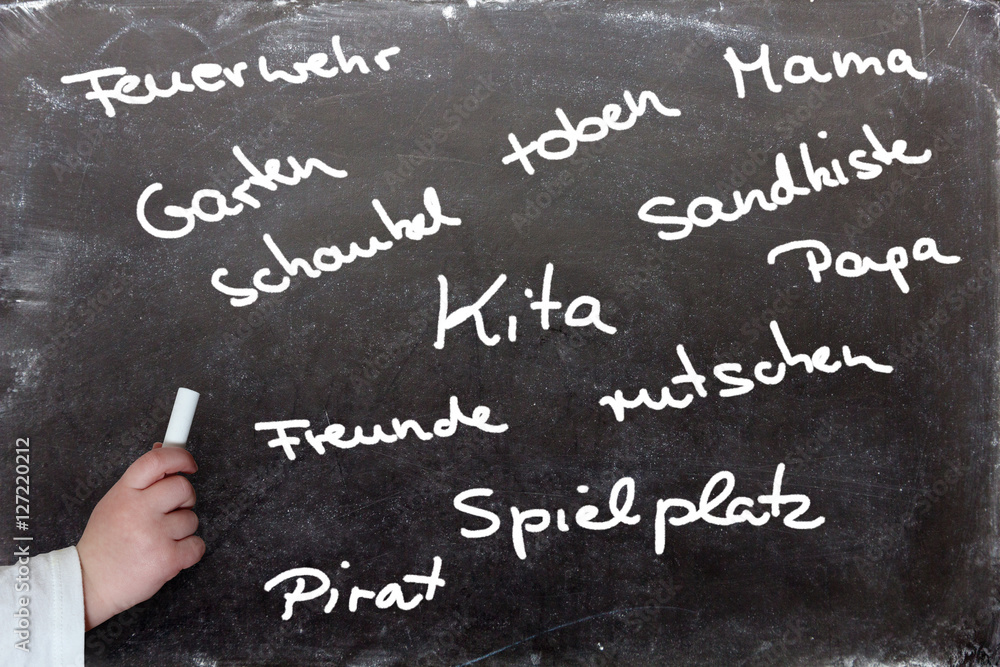 Feuerwehr
Mama
toben
Garten
Sandkiste
Schaukel
Papa
Kita
rutschen
Freunde
Spielplatz
Pirat
Adobe Stock | #127220212